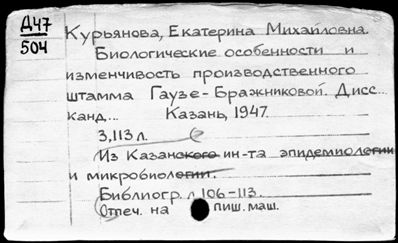 Д47
504
Курьянова, Екатерина Михайловна.
Биологические особенности и
изменчивость производственного
штамма Гаузе-Бражниковой. Дисс...
канд... Казань, 1947.
3,113 л.
Из Казанского ин-та эпидемиологии
и микробиологии.
Библиогр. л 106-113.
Отпеч. на пиш. маш.